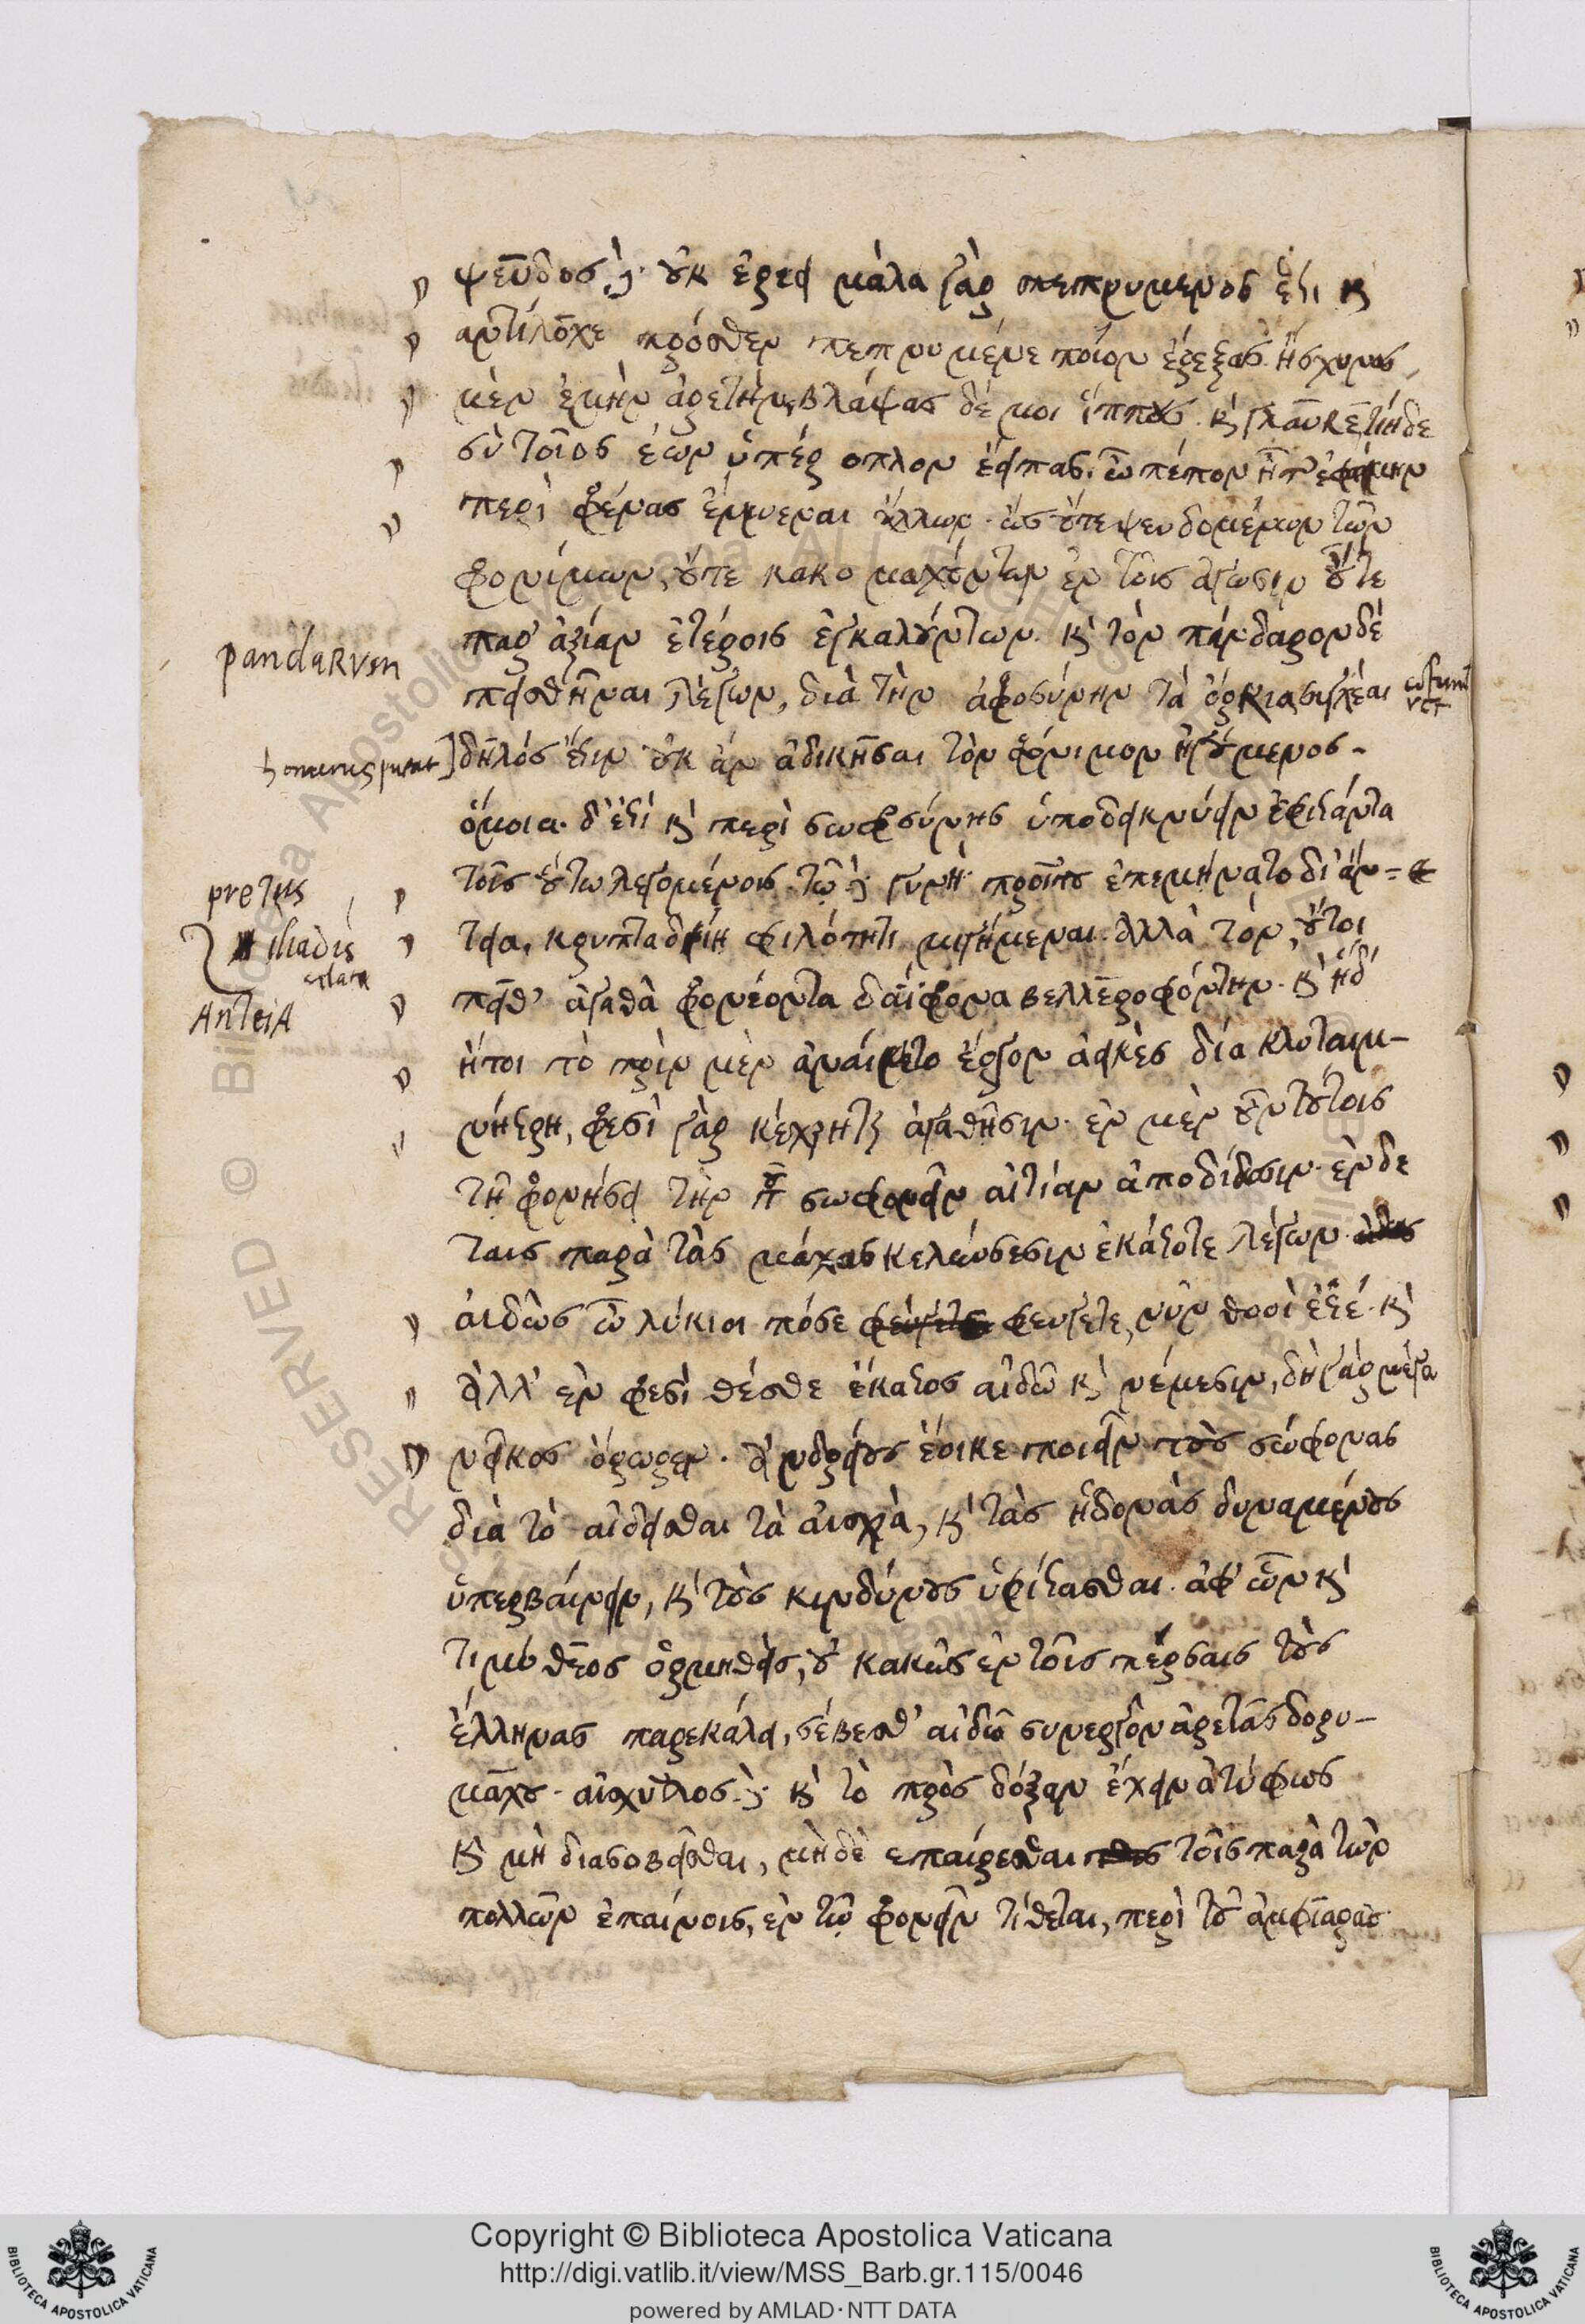 ψεῦδος δ' οὐκ ἐρέει μάλα γὰρ πεπνυμένος ἐστί κ
ἀντίλοχε πρόσθεν πεπνυμένε ποῖον ἔρεξας. ᾔσχυνας
μὲν ἐμὴν ἀρετὴν, βλάψας δέ μοι ἵππους. κὶ γλαῦκε τίη δε
σὺ τοῖος ἐὼν ὑπέρ οπλον ἔειπας. ὦ πέπον ἦ τ' ἐφάμην
περὶ φρένας ἔμμεναι ἄλλων. ὡς οὔτε ψευδομένων τῶν
φρονίμων, οὔτε κακομαχούντων ἐν τοῖς ἀγῶσιν οὔτε
pandaRum
παρ' ἀξίαν ἑτέροις ἐγκαλούντων. κὶ τὸν πάνδαρον δέ
πεισθῆναι λέγων, διὰ τὴν ἀφροσύνην τὰ ὅρκια συγχέαι
δῆλός ἐστιν οὐκ ἂν ἀδικῆσαι τὸν φρόνιμον ἡγούμενος.
ὅμοια δ' ἐστί κὶ περὶ σωφροσύνης ὑποδεικνύειν ἐφιστάντα
pretus
τοῖς οὕτω λεγομένοις. τῷ δὲ γυνὴ προίτου ἐπεμήνατο δι' ἄν=
iliadis
τεια, κρυπταδίῃ φιλότητι μιγήμεναι. ἀλλὰ τόν, οὔτι
AnteiA
πεῖθ' ἀγαθὰ φρονέοντα δαΐφρονα βελλεροφόντην. κὶ ἡδ'
ἤτοι τὸ πρὶν μὲν ἀναίνετο ἔργον ἀεικὲς δῖα κλυταιμ-
νήστρη, φρεσὶ γὰρ κέχρητ' ἀγαθῇσιν. ἐν μὲν οὖν τούτοις
τῇ φρονήσει τὴν τοῦ σωφρονεῖν αἰτίαν ἀποδίδωσιν. ἐν δε
ταις παρὰ τὰς μάχας κελεύσεσιν ἑκάστοτε λέγων
αἰδὼς ὦ λύκιοι πόσε φεύγετε, νῦν θοοὶ ἐστέ. κὶ
ἀλλ' ἐν φρεσὶ θέσθε ἕκαστος αἰδῶ κὶ νέμεσιν, δὴ γὰρ μέγα
νεῖκος ὄρωρεν. ἀνδρείους ἔοικε ποιεῖν τοὺς σώφρονας
διὰ τὸ αἰδεῖσθαι τὰ αἰσχρὰ, κὶ τὰς ἡδονὰς δυναμένους
ὑπερβαίνειν, κὶ τοὺς κινδύνους ὑφίστασθαι. ἀφ' ὧν κὶ
τιμόθεος ὁρμηθεὶς, οὐ κακῶς ἐν τοῖς πέρσαις τοὺς
ἕλληνας παρεκάλει, σέβεσθ' αἰδῶ συνεργὸν ἀρετᾶς δορυ-
μάχου. αἰσχύλος δὲ κὶ τὸ πρὸς δόξαν ἔχειν ἀτύφως
κὶ μὴ διασοβεῖσθαι, μηδὲ επαίρεσθαι τοῖς παρὰ τῶν
πολλῶν ἐπαίνοις, ἐν τῷ φρονεῖν τίθεται, περὶ τοῦ ἀμφιαράου
Copyright © Biblioteca Apostolica Vaticana
http://digi.vatlib.it/view/MSS_Barb.gr.115/0046
powered by AMLAD·NTT DATA
BIBLIOTECA APOSTOLICA VATICANA
BIBLIOTECA APOSTOLICA VATICANA